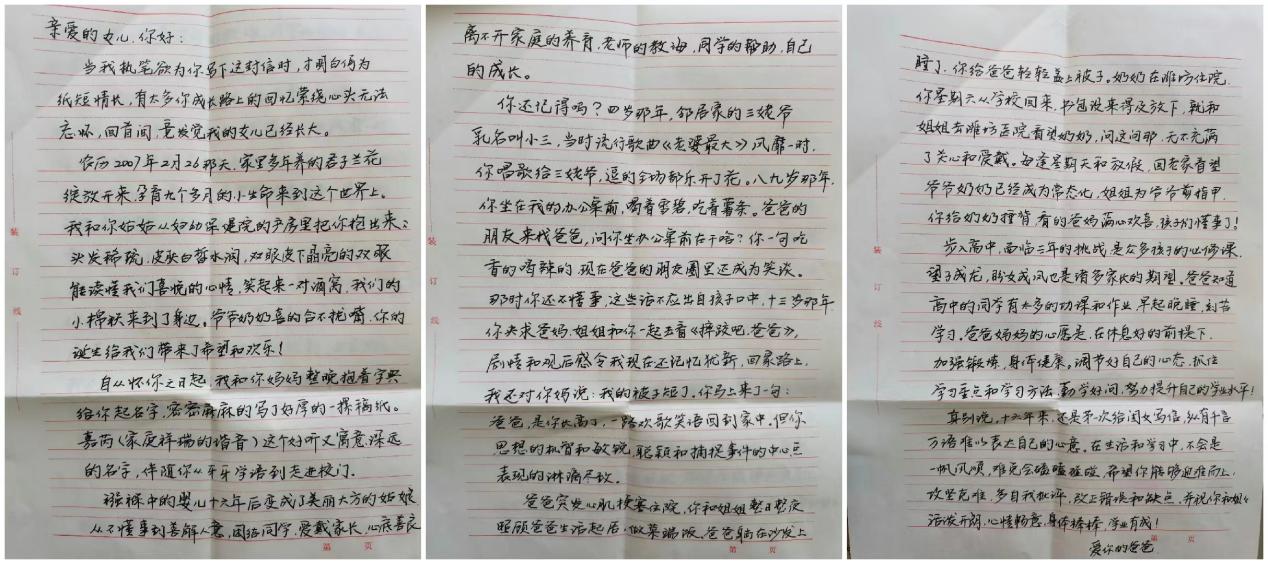 亲爱的女儿.你好:
当我执笔欲为你写下这封信时,才明白何为
纸短情长,有太多你成长路上的回忆萦绕心头无法
忘怀,回首间,竟发觉我的女儿已经长大。
农历2007年2月26那天.家里多年养的君子兰花
绽放开来.孕育九个多月的小生命来到这个世界上。
我和你姑姑从妇幼保健院的产房里把你抱出来:
头发稀疏.皮肤白皙水润,双眼皮下晶亮的双眼
能读懂我们喜悦的心情,笑起来一对酒窝,我们的
小棉袄来到了身边。爷爷奶奶喜的合不拢嘴.你的
诞生给我们带来了希望和欢乐!
自从怀你之日起,我和你妈妈整晚抱着字典
给你起名字,密密麻麻的写了好厚的一摞稿纸。
嘉芮(家庭祥瑞的谐音)这个好听又寓意深远
的名字,伴随你从牙牙学语到走进校门。
襁褓中的婴儿十六年后变成了美丽大方的姑娘
从不懂事到善解人意,团结同学.爱戴家长,心底善良
装订线
第 页
离不开家庭的养育,老师的教诲,同学的帮助,自己
的成长。
你还记得吗?四岁那年,邻居家的三姥爷
乳名叫小三,当时流行歌曲《老婆最大》风靡一时,
你唱歌给三姥爷,逗的全场都乐开了花。八九岁那年.
你坐在我的办公桌前,喝着雪碧,吃着薯条。爸爸的
朋友来找爸爸,问你坐办公桌前在干啥?你一句吃
香的喝辣的.现在爸爸的朋友圈里还成为笑谈。
那时你还不懂事,这些话不应出自孩子口中,十三岁那年
你央求爸妈.姐姐和你一起去看《摔跤吧.爸爸》,
剧情和观后感令我现在还记忆犹新,回家路上.
我还对你妈说:我的被子短了.你马上来了一句:
爸爸,是你长高了,一路欢歌笑语回到家中.但你
思想的机智和敏锐,聪颖和捕捉事件的中心点
表现的淋漓尽致。
爸爸突发心肌梗塞住院,你和姐姐整日整夜
照顾爸爸生活起居.做菜端饭.爸爸躺在沙发上
装订线
第 页
睡了.你给爸爸轻轻盖上被子。奶奶在潍坊住院.
你星期六从学校回来,书包没来得及放下,就和
姐姐去潍坊医院看望奶奶,问这问那,无不充满
了关心和爱戴。每逢星期天和放假,回老家看望
爷爷奶奶已经成为常态化,姐姐为爷爷剪指甲.
你给奶奶捶背.看的爸妈满心欢喜,孩子们懂事了!
步入高中,面临三年的挑战,是众多孩子的必修课.
望子成龙,盼女成凤也是诸多家长的期望。爸爸知道
高中的同学有太多的功课和作业,早起晚睡,刻苦
学习。爸爸妈妈的心愿是,在休息好的前提下.
加强锻炼,身体健康。调节好自己的心态.抓住
学习重点和学习方法.勤学好问.努力提升自己的学业水平!
真别说,十六年来,还是第一次给闺女写信,纵有千言
万语难以表大自己的心意。在生活和学习中,不会是
一帆风顺,难免会磕磕碰碰,希望你能够迎难而上.
攻坚克难,多自我批评,改正错误和缺点,并祝你和姐姐
活泼开朗.心情畅意,身体棒棒,学业有成!
爱你的爸爸
装订线
第 页